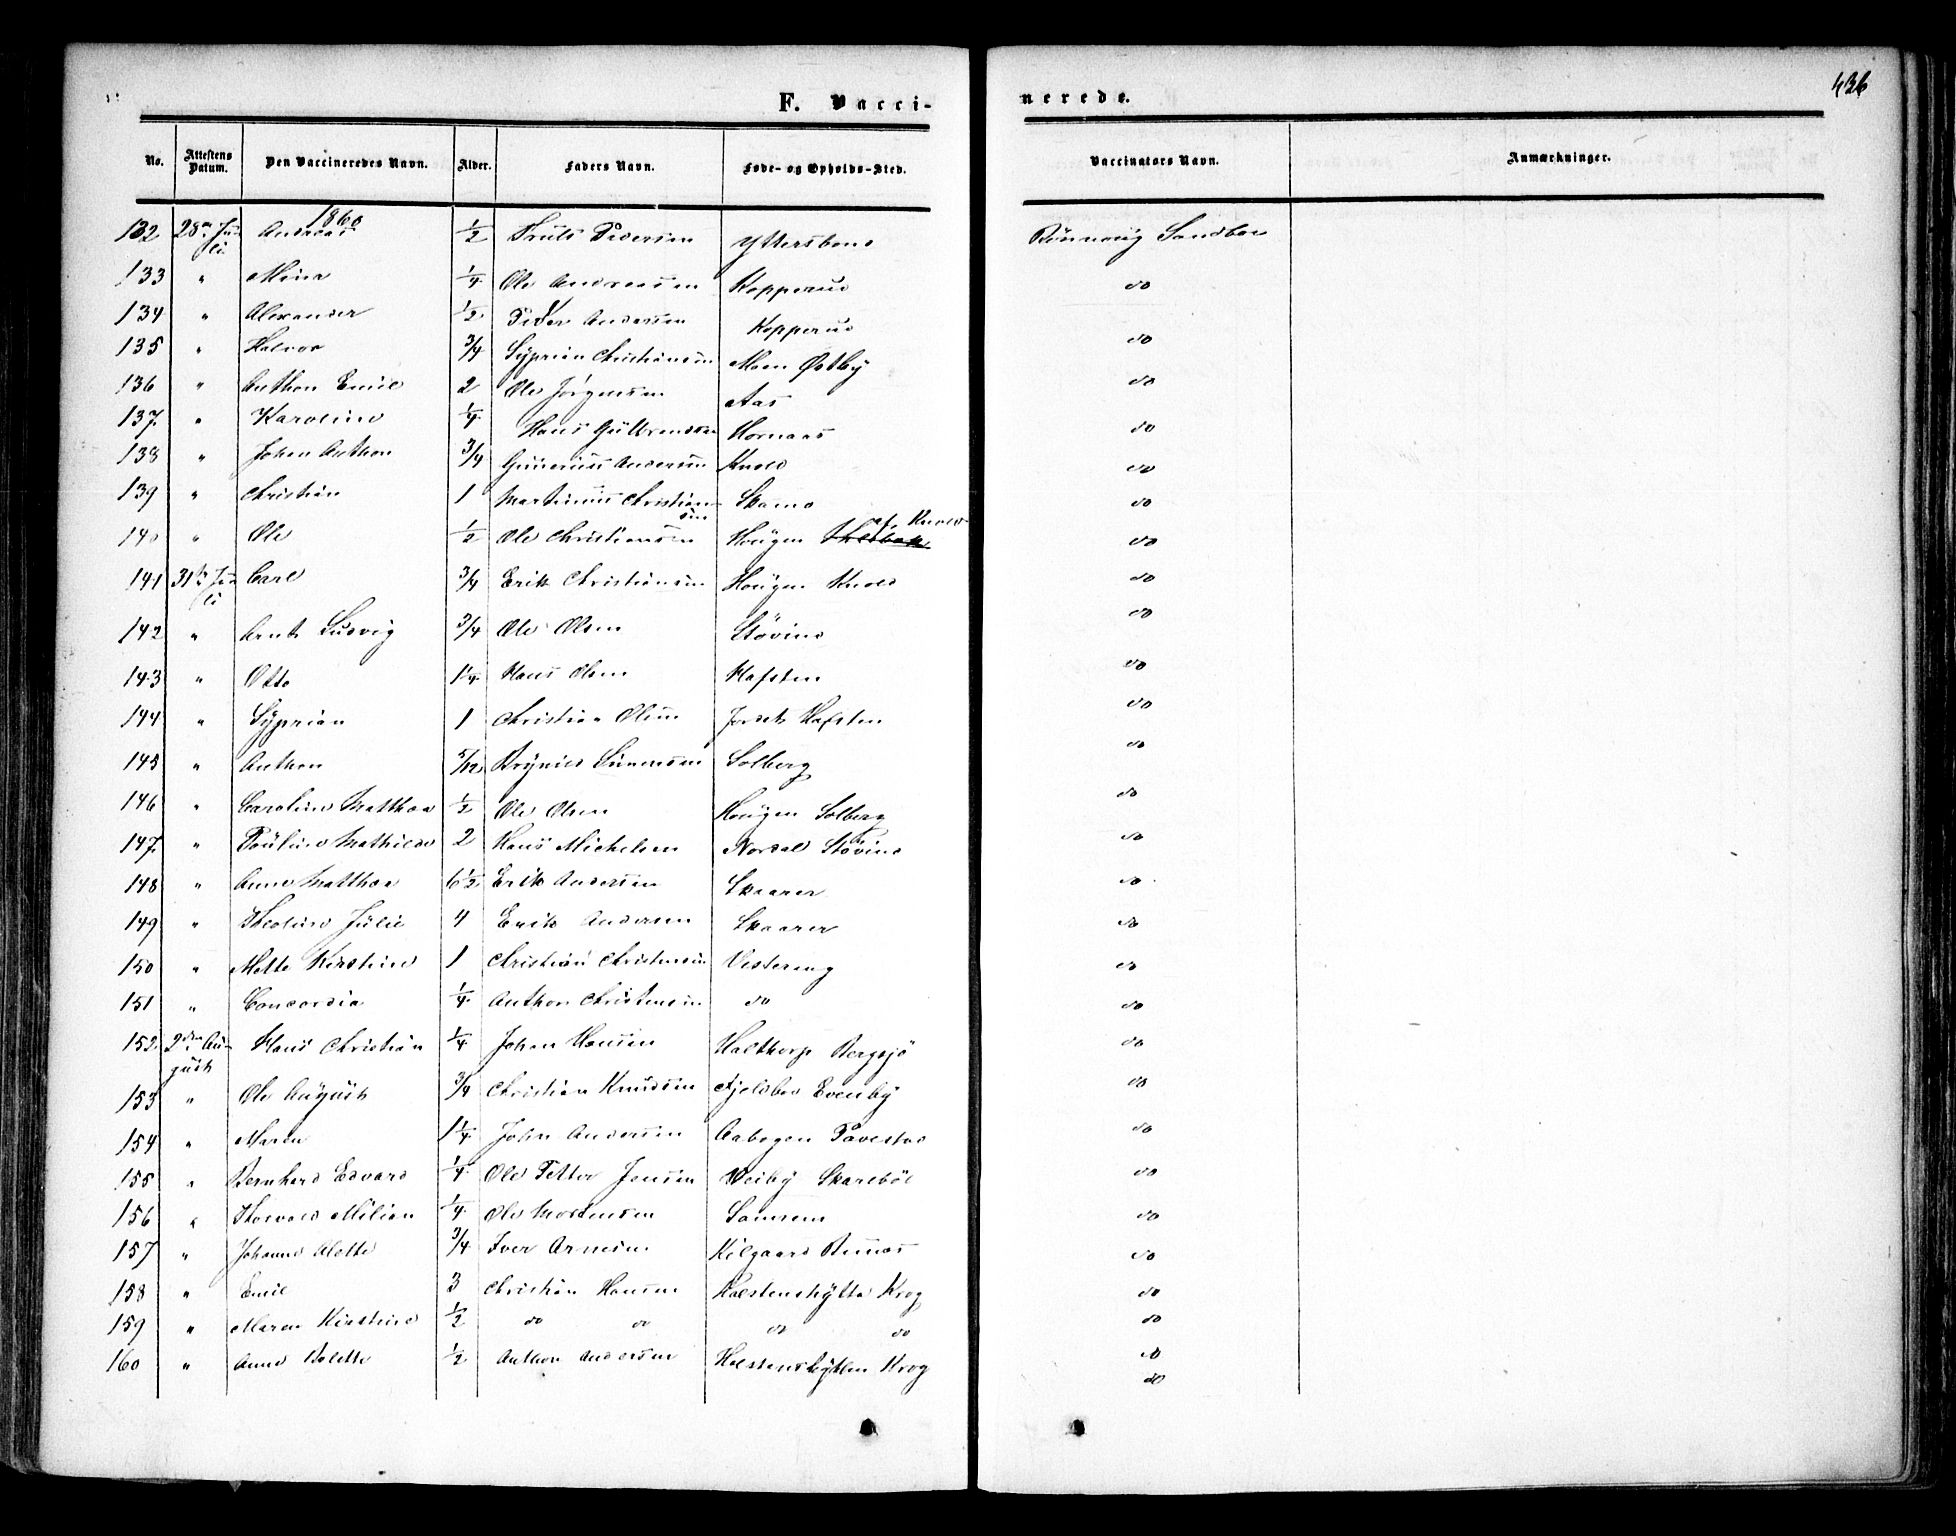 436
F. Vacci-
nerede.
No. Attestens Datum. Den Vaccineredes Navn. Alder. Faders Navn. Føde- og Opholds-Sted. Vaccinators Navn. Anmærkninger.
1860
132 28de Juli Andreas 1/2 Truls Pedersen Yttersbond Rønnaug Sandboe
133 " 1/4 Ole Andreassen Kopperud do
134 " Alexander 1/2 Peder Andersen Kopperud do
135 " Halvor 3/4 Syprian Christiansen Moen Østby do
136 " Anthon Emil 2 Ole Jørgensen Aas do
137. " Karoline 1/4 Hans Gulbrandsen Hornaas do
138 " Johan Anthon 3/4 Gunerius Andersen Knold do
139 " Christian 1 Martinus Christiansen do
140 " Ole 1/2 Ole Christiansen Hougen af Knold do
141 31te Juli Carl 3/4 Erik Christiansen Hougen Knold do
142 " Arnt Ludvig 3/4 Ole Olsen Støvind do
143 " Otto 1 1/4 Hans Olsen Hafsten do
144 " Syprian 1 Christian Olsen Hafsten do
145 " Anthon 5/12 Brynild Simensen Solberg do
146 " Caroline Matthea 1/2 Ole Olsen Hougen Solberg do
147. " Pauline Mathilde 2 Hans Michelsen Nordal Støvind do
148 " Anne Matthea 6 1/2 Erik Andersen Skaarer do
149 " Theoline Julie 4 Erik Andersen Skaarer do
150 " Mette Kirstine 1 Christian Christensen Vestereng do
151 " Concordia 1/4 Anthon Christensen do do
152. 2den August Hans Christian 1/4 Johan Hansen Haltkorp Bergsjø do
153 " Ole August 3/4 Christian Knudsen Evenby do
154 " Maren 1 1/4 John Andersen Aabogen Pavestad do
155 " Bernhard Edvard 1/4 Ole Petter Jensen Veiby Skarebøl do
156 " Thorvald Milian 1/4 Ole Mortensen Samsem do
157 " Johanne Alette 3/4 Iver Arnesen Kilgaard do
158 " Emil 3 Christian Hansen Halstenshytta Krog do
159 " Maren Kirstine 1/2 do do do do do
160 " Anne Bolette 1/2 Anthon Andersen Halstenshytten Krog do
do